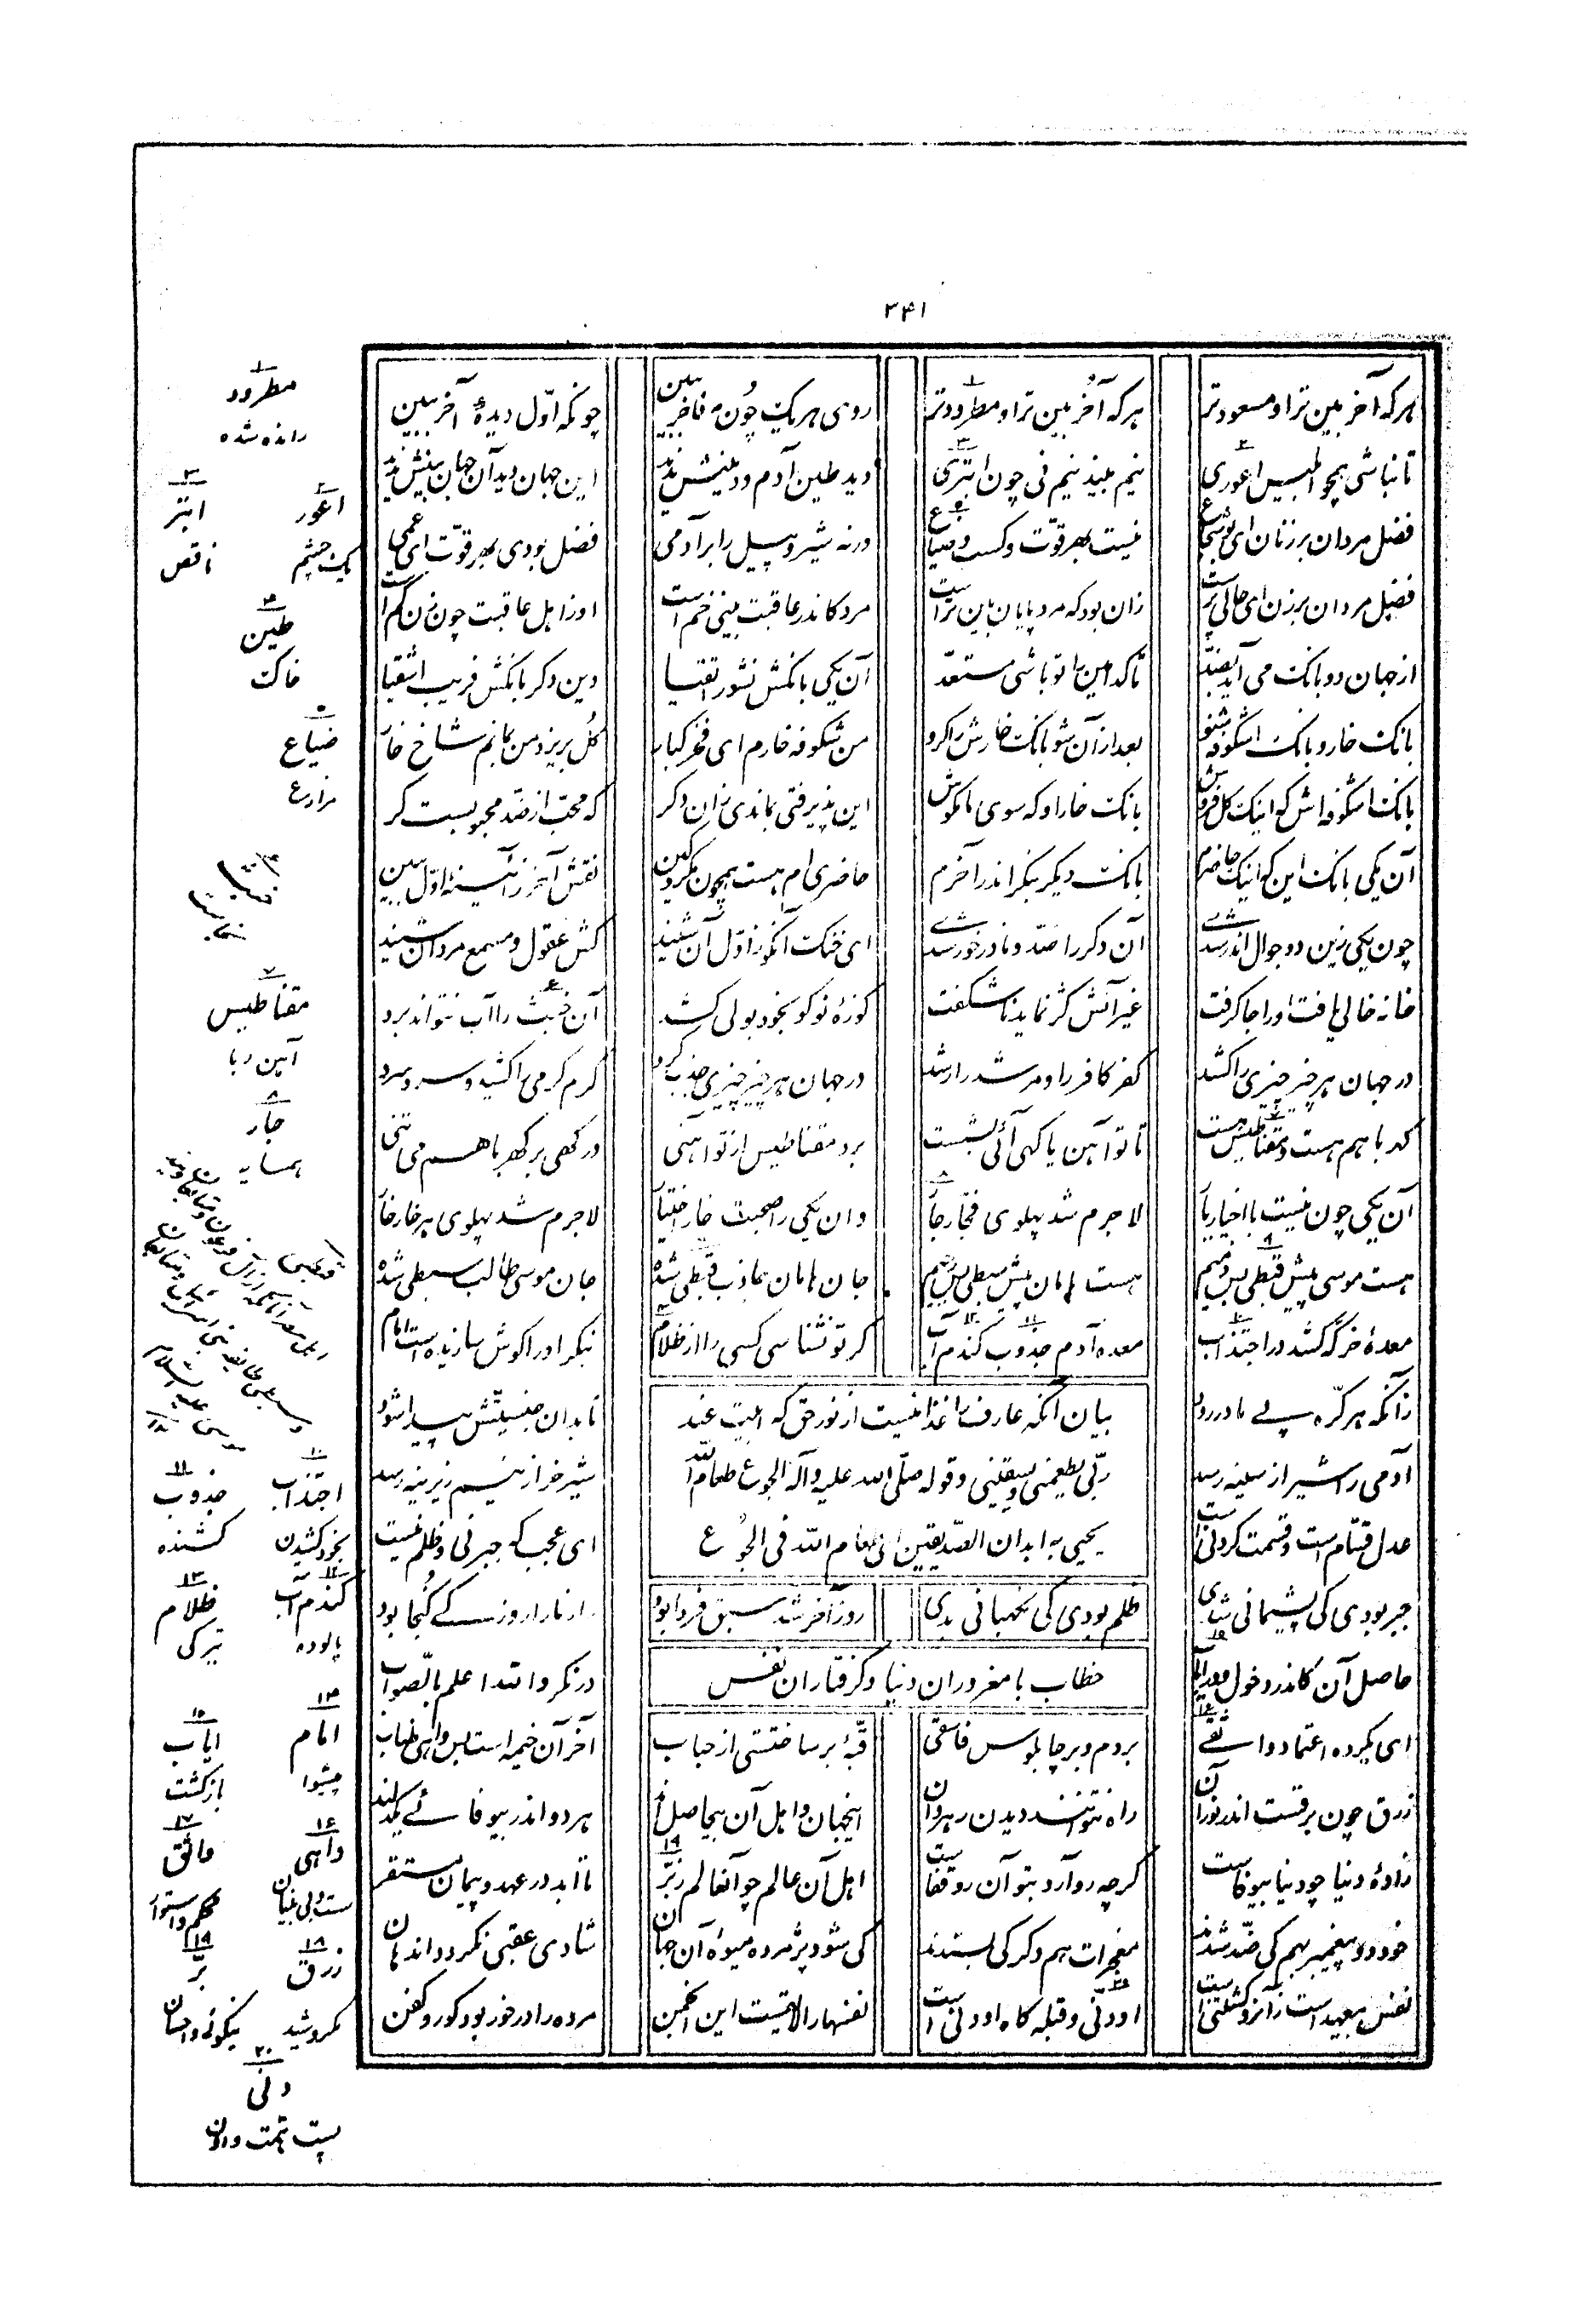 ۳۴۱
هر که آخر بین تر او مسعودتر
هر که آخُر بین تر او مطرودتر
روی هر یک چون مه فاخر ببین
چونکه اوّل دیده شد آخر ببین
تا نباشی همچو ابلیس اعوری
نیم بیند نیم نی چون ابتری
دید طین آدم و دینش ندید
این جهان دید آن جهان بینش ندید
فضل مردان بر زنان ای بو شجاع
نیست بهر قوّت و کسب و ضیاع
ورنه شیر و پیل را بر آدمی
فضل بودی بهر قوّت ای عمی
فضل مردان بر زن ای حالی پرست
زان بود که مرد پایان بین تر است
مرد کاندر عاقبت بینی خم است
او ز اهل عاقبت چون زن کم است
از جهان دو بانک می آید بضدّ
تا کدامین را تو باشی مستعدّ
آن یکی بانکش نشور اتقیا
وین دکر بانکش فریب اشقیا
بانک خار و بانک اشکوفه شنو
بعد از آن شو بانک خارش را کرو
من شکوفه خارم ای فخر کبار
کل بریزد من بمانم شاخ خار
بانک اشکوفه اش که اینک کل فروش
بانک خار او که سوی ما مکوش
این پذیرفتی بماندی زان دکر
که محبّ از ضدّ محبوبست کر
آن یکی بانک این که اینک حاضرم
بانک دیکر بنکر اندر آخرم
حاضری ام هست همچون مکر و کین
نقش آخر ز آئینهٔ اوّل ببین
چون یکی زین دو جوال اندر شدی
آن دکر را ضدّ و نادرخور شدی
ای خنک آنکو ز اوّل آن شنید
کش عقول و مسمع مردان شنید
خانه خالی یافت او را جا کرفت
غیر آنش کژ نماید نا شکفت
کوزهٔ نو کو بخود بولی کشید
آن خبث را آب نتواند برید
در جهان هر چیز چیزی را کشد
کفر کافر را و مرشد را رشد
در جهان هر چیز چیزی جذب کرد
کرم کرمی را کشید و سرد سرد
کهربا هم هست و مقناطیس هست
تا تو آهن یا کهی آئی بشست
برد مقناطیس ار تو آهنی
ور کهی بر کهربا هم می تنی
آن یکی چون نیست با اخیار یار
لاجرم شد پهلوی فجّار جار
وان یکی را صحبت خار اختیار
لاجرم شد پهلوی هر خار خار
هست موسی پیش قبطی بس ذمیم
هست هامان پیش سبطی بس رجیم
جان هامان جاذب قبطی شده
جان موسی طالب سبطی شده
معدهٔ خر که کشد در اجتذاب
معده آدم جذوب کندم آب
کر تو نشناسی کسی را از ظلام
بنکر او را کوش سازیده است امام
بیان آنکه عارف را غذا نیست از نور حق که ابیت عند
ربّی یطعمنی و یسقینی و قوله صلّی الله علیه و آله الجوع طعام الله
یحیی به ابدان الصّدیقین ای طعام الله فی الجوع
زانکه هر کرّه پی مادر رود
تا بدان جنسیّتش پیدا شود
آدمی را شیر از سینه رسد
شیر خر از نیم زیرینه رسد
عدل قسّام است و قسمت کردنی است
ای عجب که جبر نی و ظلم نیست
جبر بودی کی پشیمانی بدی
ظلم بودی کی نکهبانی بدی
روز آخر شد سبق فردا بود
راز ما را روز کی کنجا بود
خطاب با مغروران دنیا و کرفتاران نفس
حاصل آن کاندر دخول و در ایاب
در نکر والله اعلم بالصّواب
ای بکرده اعتماد واثقی
بر دم و بر چاپلوس فاسقی
قبّهٔ بر ساختستی از حباب
آخر آن خیمه است بس واهی طناب
زرق چون برقست اندر نور آن
راه نتوانند دیدن رهروان
اینجهان و اهل آن بیحاصل اند
هر دو اندر بیوفائی یکدلند
زادهٔ دنیا چو دنیا بیوفاست
کرچه رو آرد بتو آن رو قفاست
اهل آن عالم چو آنعالم ز برّ
تا ابد در عهد و پیمان مستقر
خود دو پیغمبر بهم کی ضدّ شدند
معجزات هم دکر کی بستدند
کی شود پژمرده میوهٔ آن جهان
شادی عقبی نکردد اندهان
نفس بیعهد است زانرو کشتنی است
او دنّی و قبله کاه او دنی است
نفسها را لایقست این انجمن
مرده را درخور بود کور و کفن
۱
مطرود
رانده شده
۲
اعور
یک چشم
۳
ابتر
ناقص
۴
طین
خاک
۵
ضیاع
مزارع
۶
خبث
نجاست
۷
مقناطیس
آهن ربا
۸
جار
همسایه
۹
قبطی
۱۰
اجتذاب
بخود کشیدن
۱۱
جذوب
کشنده
۱۲
کندم آب
پالوده
۱۳
ظلام
تیرکی
۱۴
امام
پیشوا
۱۵
ایاب
بازکشت
۱۶
واهی
سست و بی بنیان
۱۷
واثق
محکم و استوار
۱۸
زرق
مکر و شید
۱۹
برّ
نیکوئی و احسان
۲۰
دنی
پست همت و دون